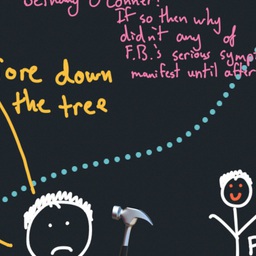 Bethany O'Conner?
If so then why
didn't any of
F.B.'s serious symp
manifest until after
ore down
the tree
F